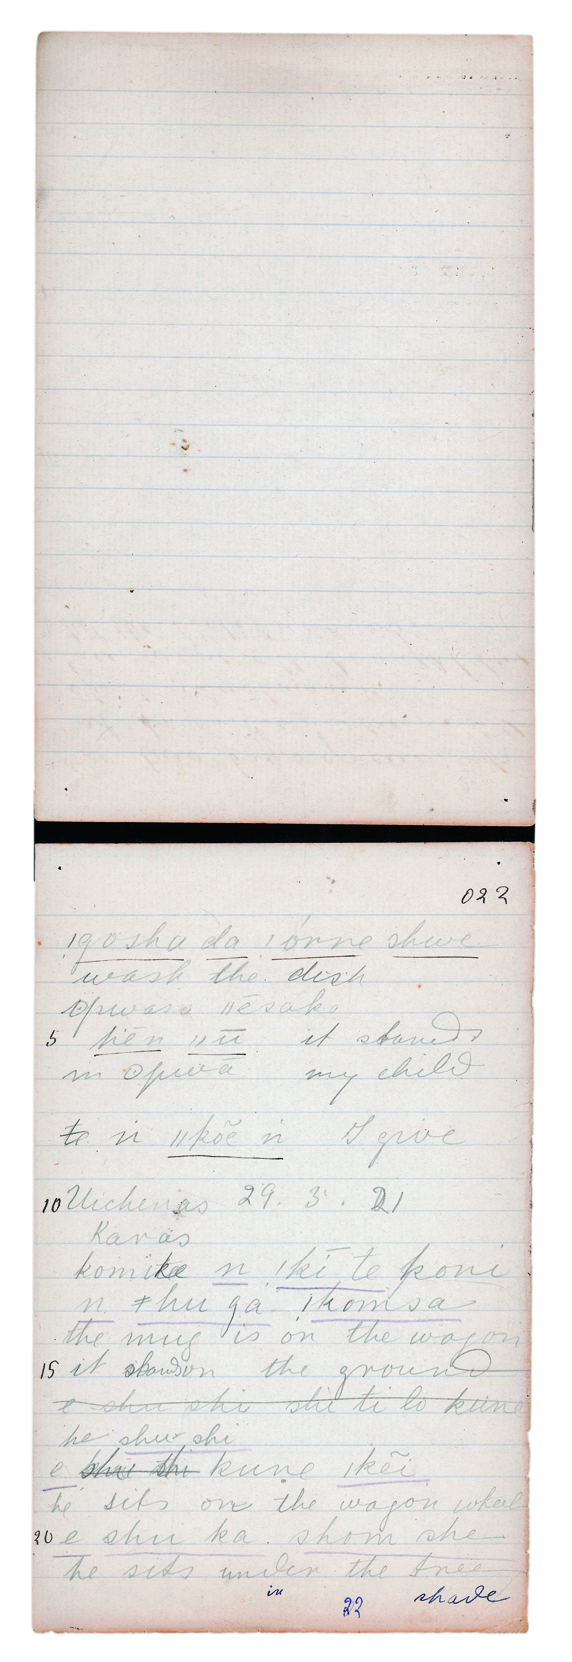 022
!gosha da !órne shwe
wash the dish
ʘpwasa ǁēsako
5 hēn ǁū it stands
m ʘpwa my child
te n ǁkõē n I give
10 Uichenas 29. 3. 21
Karas
komike n ǀkī te koni
n ǂhu ga !homsa
the mug is on the wagon
15 it stands on the ground
e shu shi shi ti lo kune
he shu shi
e shu shi kune ǀkēi
he sits on the wagon wheel
20 e shu ka shom she
he sits under the tree
in 22 shade